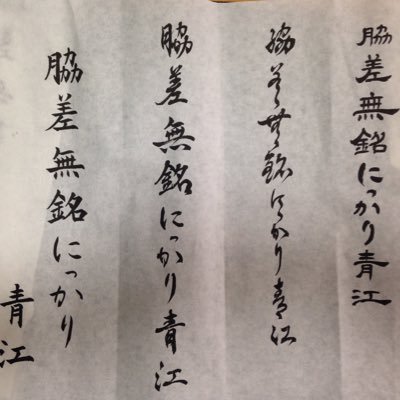 脇差無銘にっかり青江
脇差無銘にっかり青江
脇差無銘にっかり青江
脇差無銘にっかり
青江